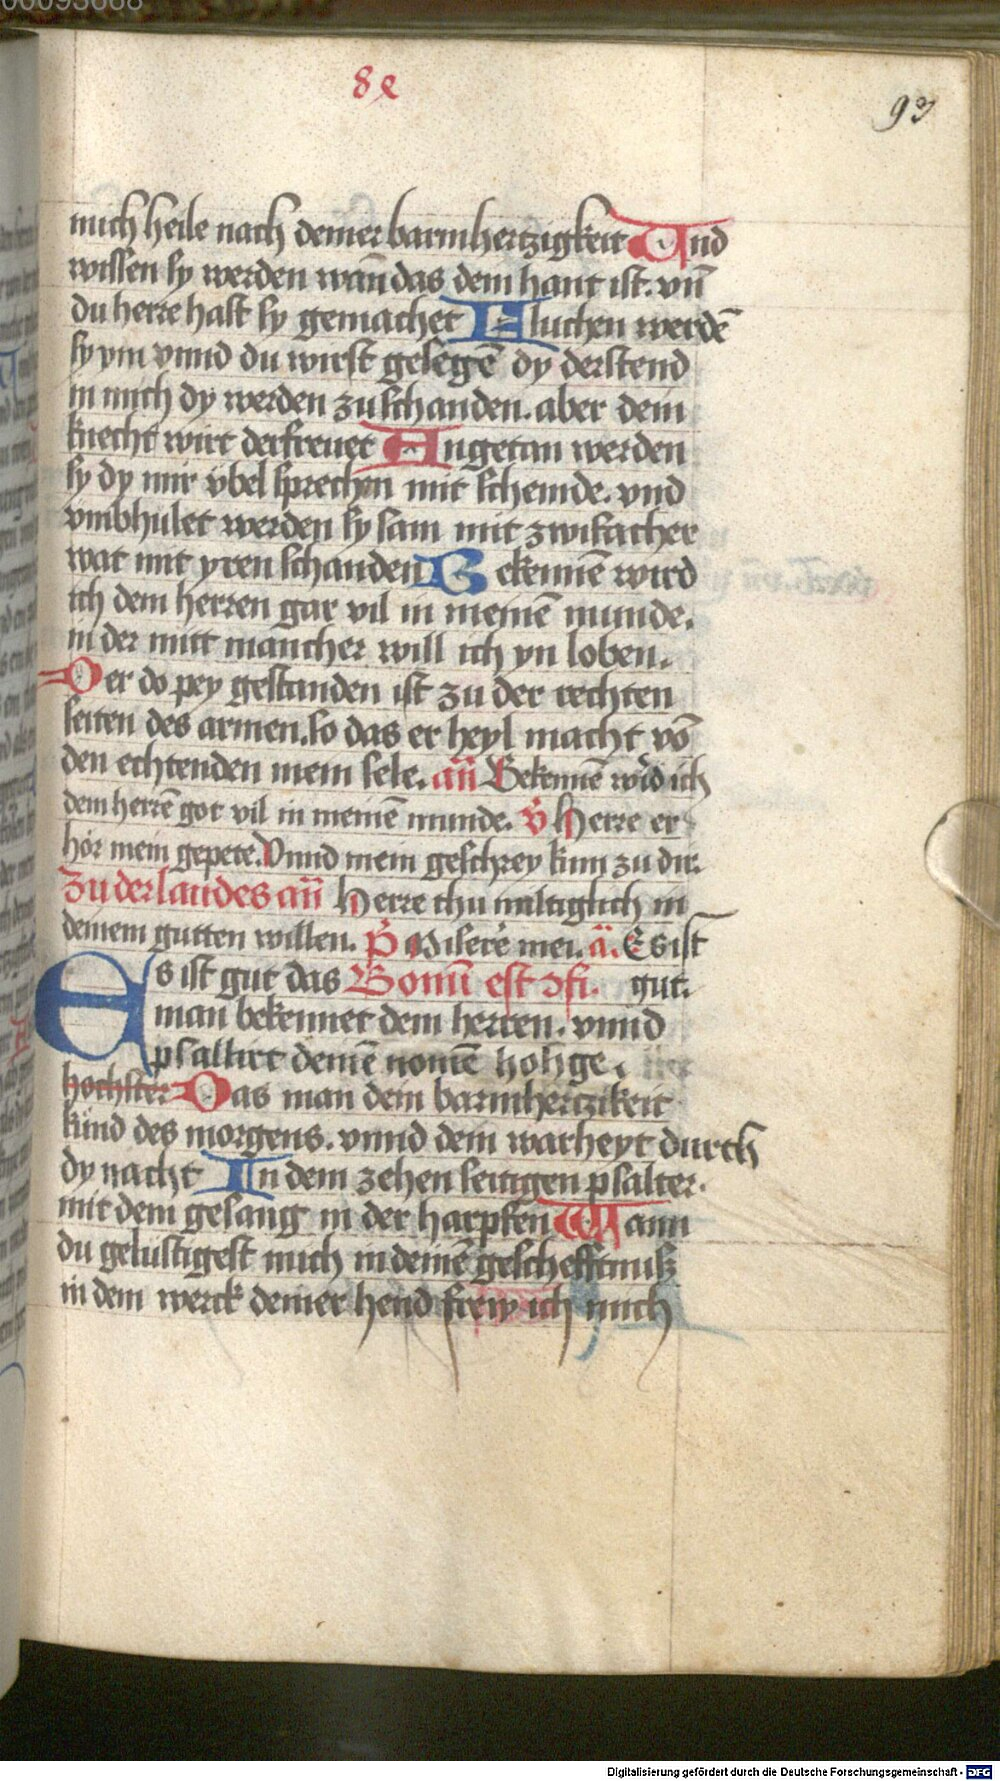 00093668
8e
93
mich heile nach deiner barmhertzigkeit Und
wissen sy werden wan̄ das dein hant ist. vn̄
du herre hast sy gemachet Fluchen werdē
sy ym vnnd du wirst gesegē dy derstend
in mich dy werden zu schanden. aber dein
knecht wirt derfreuet Angetan werden
sy dy mir vbel sprechen mit schemde. vnd
vmbhulet werden sy sam mit zwifacher
wat mit yren schanden Bekennē wird
ich dem herren gar vil in meinē munde.
in der mitt mancher will ich yn loben.
Der do pey gestanden ist zu der rechten
seiten des armen. so das er heyl macht vō
den echtenden mein sele. an̄ Bekennē wird ich
dem herrē got vil in meinē munde. V̄ Herre er
hör mein gepete. Vnnd mein geschrey kum zu dir.
Zu der laudes an̄ Herre thu miltiglich in
deinem gutten willen. P̄ Miserē mei. ā. Es ist
Es ist gut das Bonū est ɔfi. gut.
man bekennet dem herren. vnnd
psallirt deinē nomē hohge.
hochster Das man dein barmhertzikeit
künd des morgens. vnnd dein warheyt durch
dy nacht In dem zehen seitigen psalter.
mit dem gesang in der harpfen Wann
du gelustigest mich in deinē gescheffmiß
in dem werck deiner hend frew ich mich
Digitalisierung gefördert durch die Deutsche Forschungsgemeinschaft - DFG